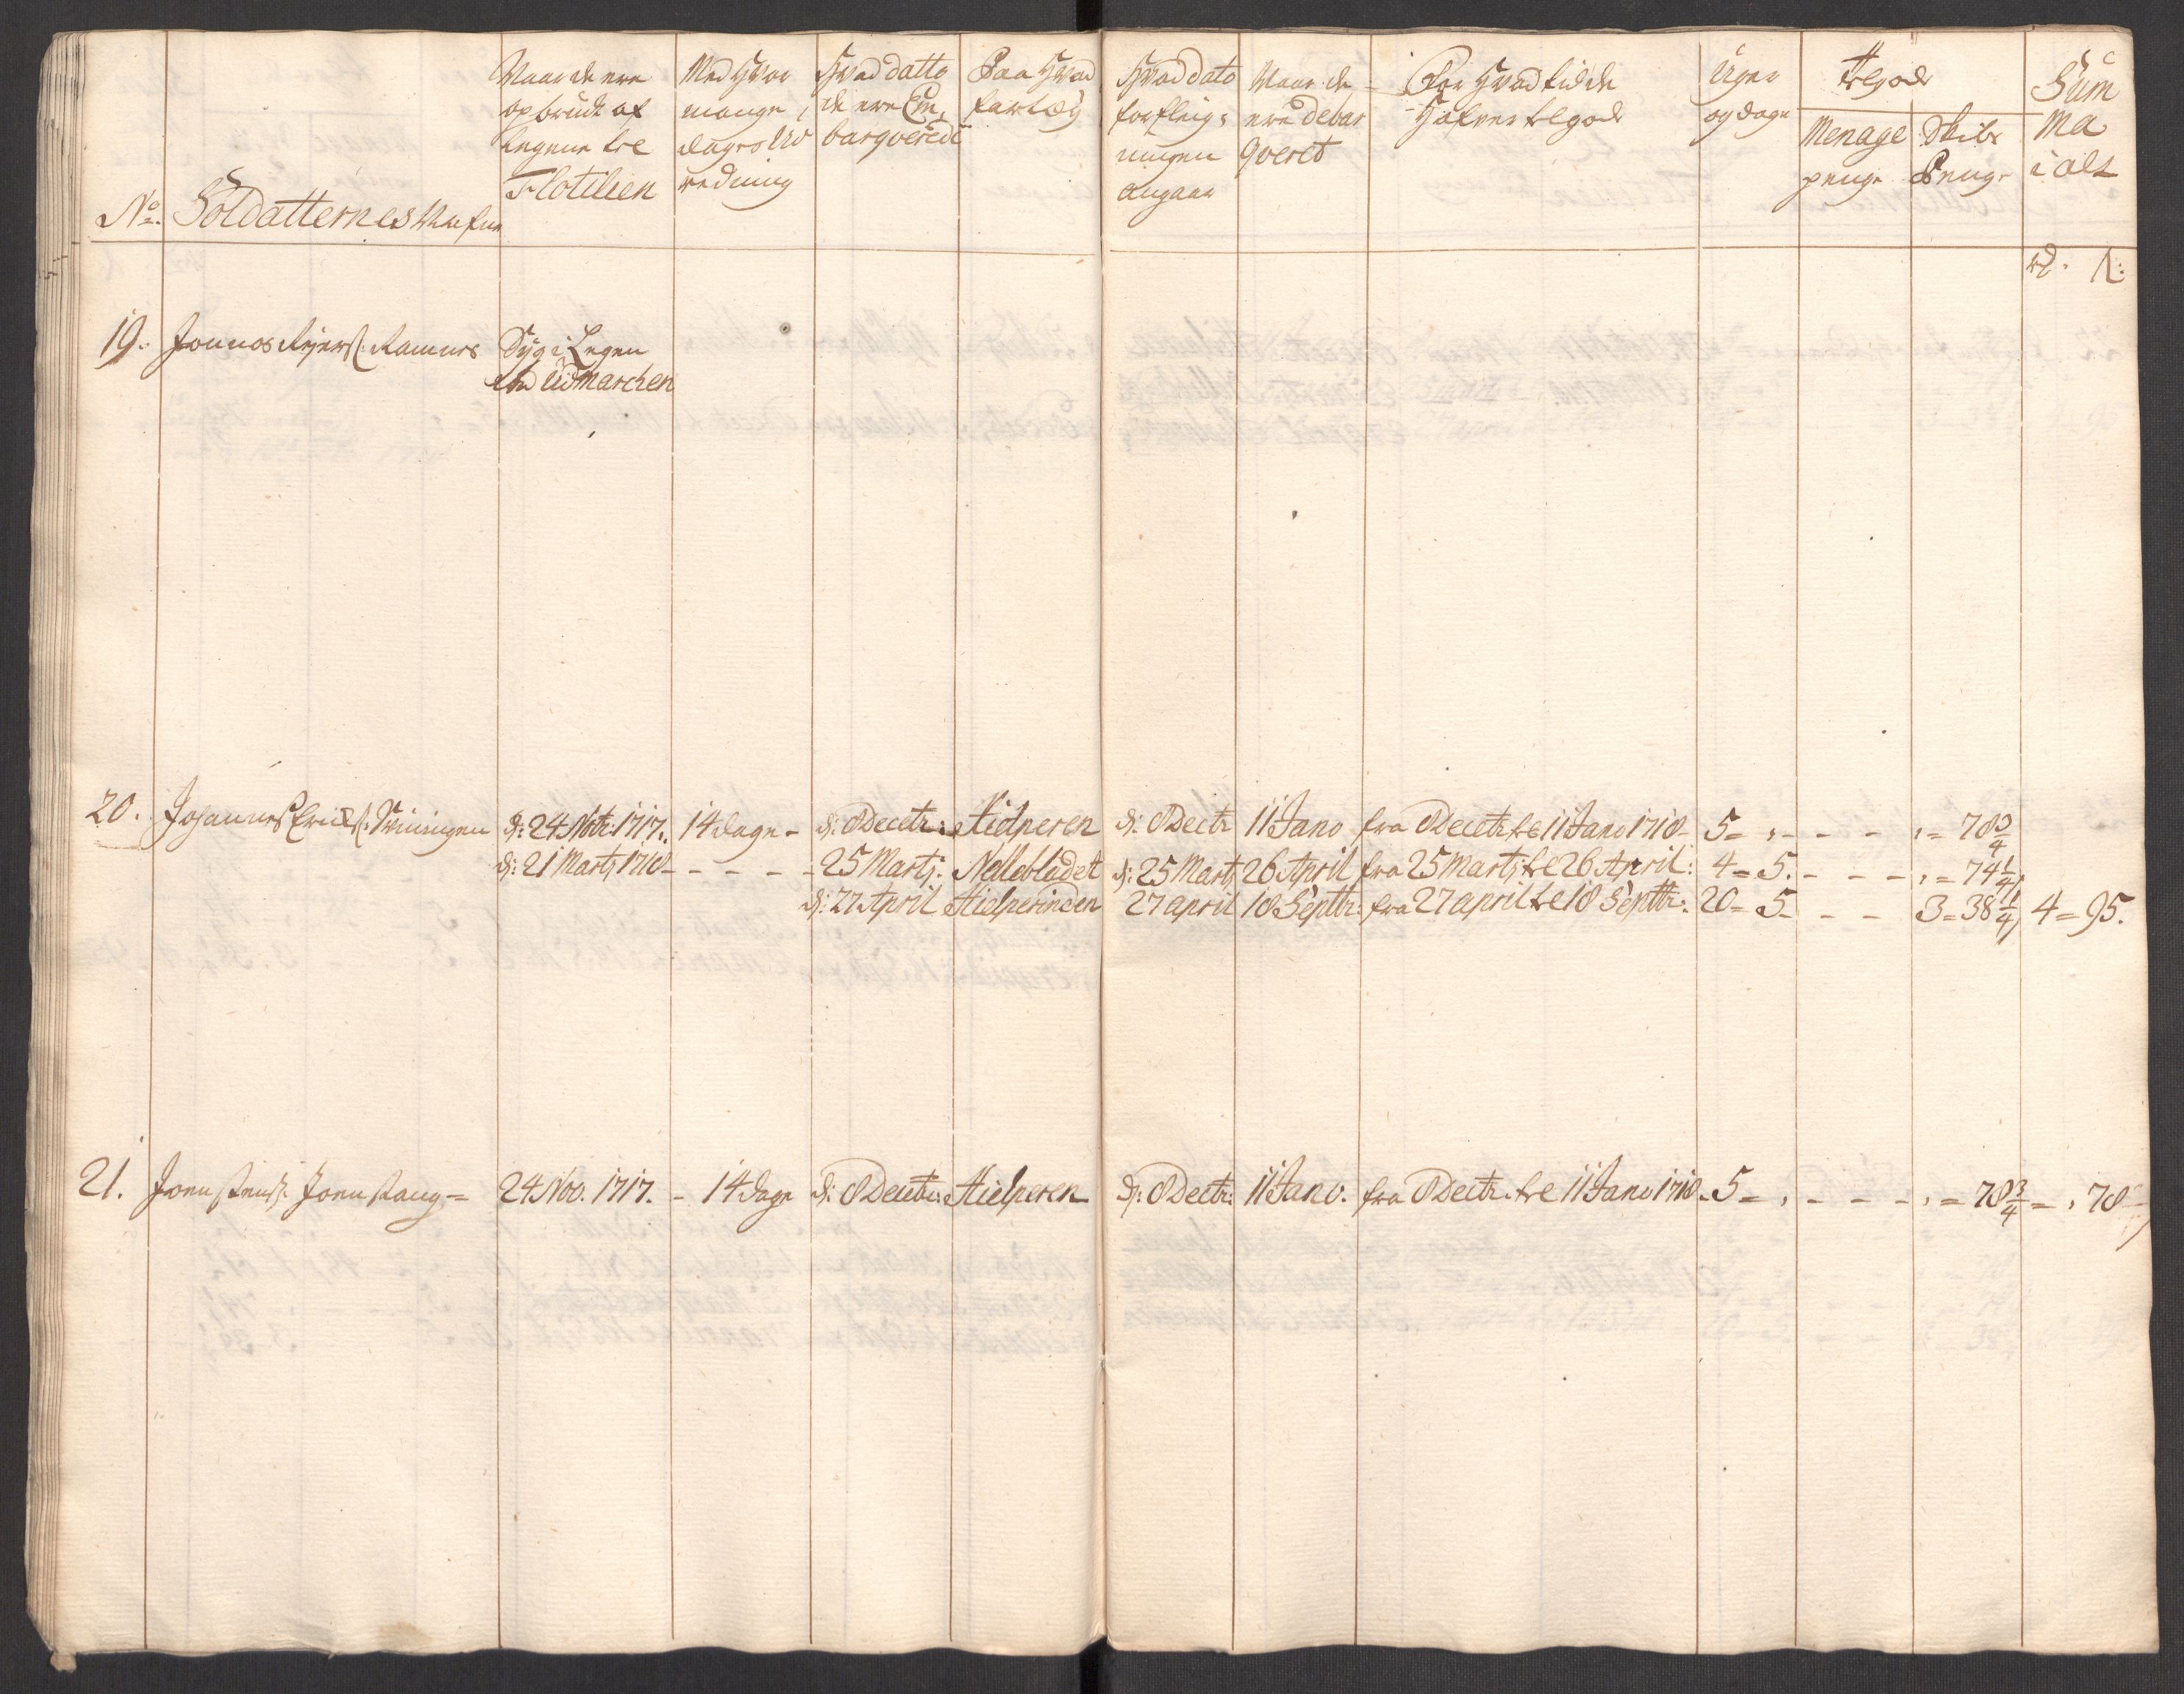 No. Soldatternes Nafne
Naar de ere
opbrudt af
Legene til
Flotilien
Med Hvor
mange
dages Ud
redning
Hvad datto
de ere Em
barqverede
Paa Hvad
fartøy
Hvad dato
forfleig:
ningen
angaar
Naar de
ere debar
qveret
For Hvad tid de
Hafver tilgode
Uger
og dage
tilgode
Menage
penge
Skibs
Penge
Sum
ma
i alt
rd. s:
19. Jonnos
Syg i Legen
ved Udmarchen
20. Johannes Erichs:
d: 24 Notr: 1717. 14 dage - d: 8 Decetr: Hielperen d: 8 Dectr 11 Jano fra 8 Decetr til 11 Jano 1718 - 5 = , - - - , = 78 3/4
d: 21 Martj 1718 - - - - - 25 Martj: Nelleblodet d: 25 Martj 26 April fra 25 Martj til 26 April: 4 = 5. - - - , = 74 1/4
d: 27 April Hielperinden 27 april 18 Septtr: fra 27 april til 18 Septtr: 20 = 5 - - - 3 = 38 1/4 4 = 95.
21. Joen Joen
24 Nov. 1717. - 14 dage d: 8 Decetr: Hielperen d: 8 Dectr: 11 Jano. fra 8 Dectr. til 11 Jano 1718. 5 = , - - - , = 78 3/4 = , 78